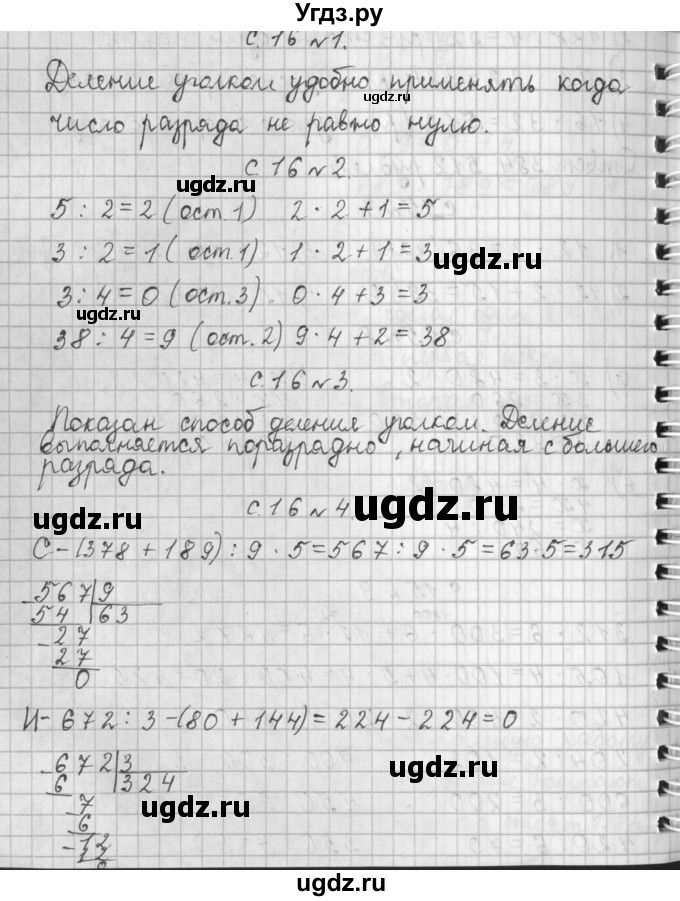 Угдз.ру
с. 16 № 1.
Деление уголком удобно применять когда
ugdz.ru
число разряда не равно нулю.
с. 16 № 2.
ugdz.ru
5 : 2 = 2 (ост. 1) 2 · 2 + 1 = 5
3 : 2 = 1 (ост. 1) 1 · 2 + 1 = 3
ugdz.ru
3 : 4 = 0 (ост. 3) 0 · 4 + 3 = 3
ugdz.ru
38 : 4 = 9 (ост. 2) 9 · 4 + 2 = 38
с. 16 № 3.
Показан способ деления уголком. Деление
выполняется поразрядно, начиная с большего
разряда.
ugdz.ru
с. 16 № 4
ugdz.ru
С - (378 + 189) : 9 · 5 = 567 : 9 · 5 = 63 · 5 = 315
567 9
54 63
- 27
27
0
ugdz.ru
И - 672 : 3 - (80 + 144) = 224 - 224 = 0
- 672 3
6 324
ugdz.ru
- 7
6
ugdz.ru
- 12
12
0
ugdz.ru